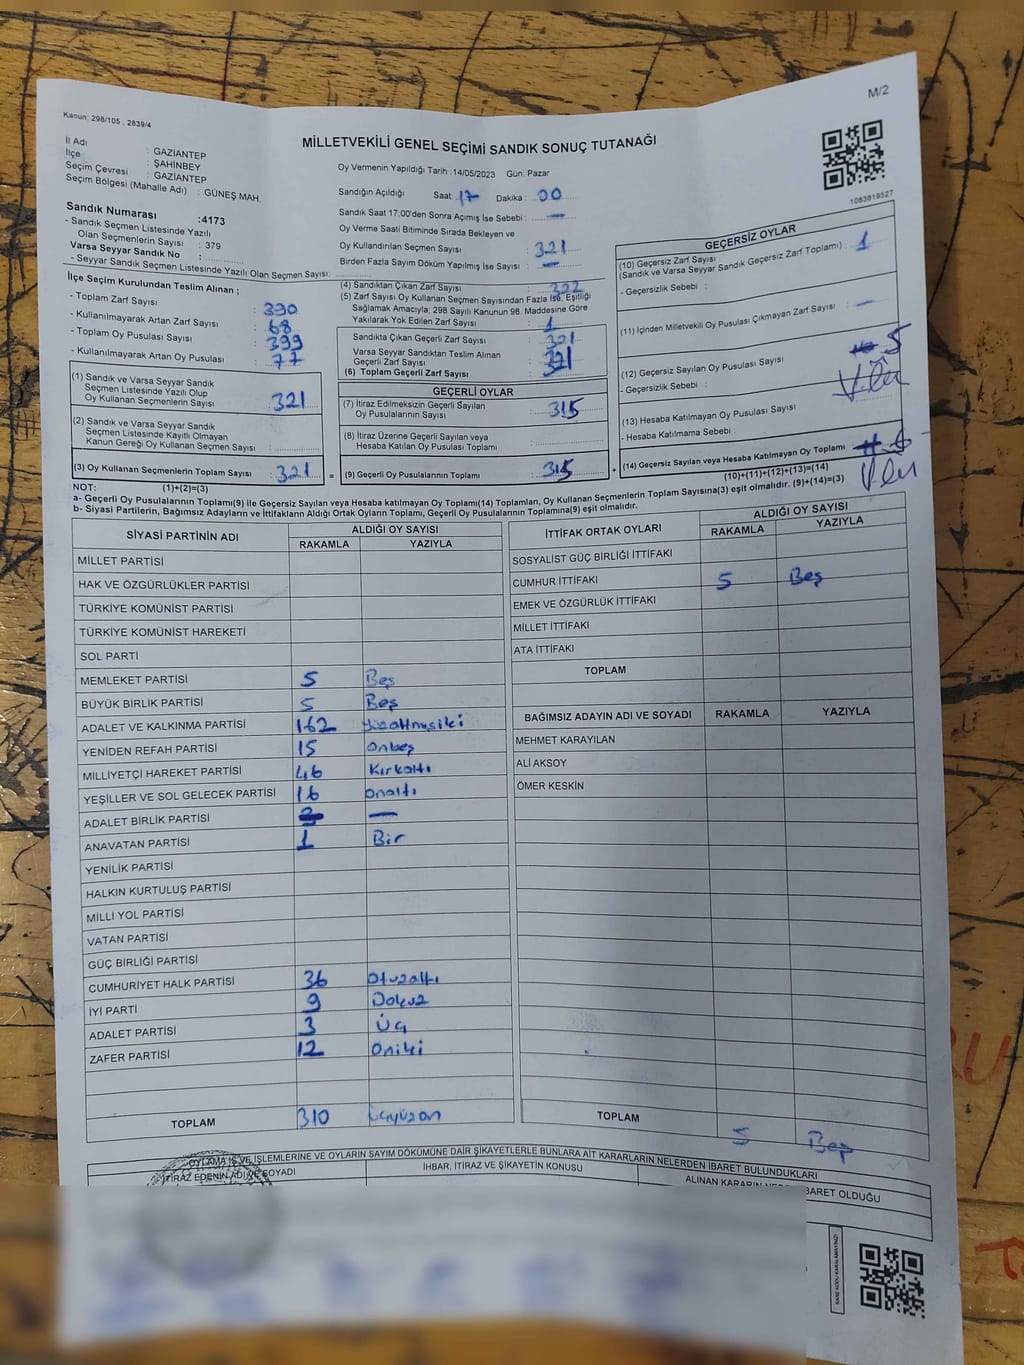 M/2
Kanun: 298/105 , 2839/4
MİLLETVEKİLİ GENEL SEÇİMİ SANDIK SONUÇ TUTANAĞI
İl Adı : GAZİANTEP
İlçe : ŞAHİNBEY
Seçim Çevresi : GAZİANTEP
Seçim Bölgesi (Mahalle Adı) : GÜNEŞ MAH.
Sandık Numarası :4173
- Sandık Seçmen Listesinde Yazılı
Olan Seçmenlerin Sayısı : 379
Varsa Seyyar Sandık No :
- Seyyar Sandık Seçmen Listesinde Yazılı Olan Seçmen Sayısı:
İlçe Seçim Kurulundan Teslim Alınan ;
- Toplam Zarf Sayısı : 390
- Kullanılmayarak Artan Zarf Sayısı : 68
- Toplam Oy Pusulası Sayısı : 399
- Kullanılmayarak Artan Oy Pusulası : 77
(1) Sandık ve Varsa Seyyar Sandık
Seçmen Listesinde Yazılı Olup
Oy Kullanan Seçmenlerin Sayısı : 321
(2) Sandık ve Varsa Seyyar Sandık
Seçmen Listesinde Kayıtlı Olmayan
Kanun Gereği Oy Kullanan Seçmen Sayısı :
(3) Oy Kullanan Seçmenlerin Toplam Sayısı : 321
Oy Vermenin Yapıldığı Tarih :14/05/2023 Gün: Pazar
Sandığın Açıldığı Saat: 17 Dakika : 00
Sandık Saat 17:00'den Sonra Açımış İse Sebebi : —
Oy Verme Saati Bitiminde Sırada Bekleyen ve
Oy Kullandırılan Seçmen Sayısı : 321
Birden Fazla Sayım Döküm Yapılmış İse Sayısı : —
(4) Sandıktan Çıkan Zarf Sayısı : 322
(5) Zarf Sayısı Oy Kullanan Seçmen Sayısından Fazla İse, Eşitliği
Sağlamak Amacıyla; 298 Sayılı Kanunun 98. Maddesine Göre
Yakılarak Yok Edilen Zarf Sayısı : 1
Sandıkta Çıkan Geçerli Zarf Sayısı : 321
Varsa Seyyar Sandıktan Teslim Alınan
Geçerli Zarf Sayısı :
(6) Toplam Geçerli Zarf Sayısı : 321
GEÇERLİ OYLAR
(7) İtiraz Edilmeksizin Geçerli Sayılan
Oy Pusulalarının Sayısı : 315
(8) İtiraz Üzerine Geçerli Sayılan veya
Hesaba Katılan Oy Pusulası Toplamı :
= (9) Geçerli Oy Pusulalarının Toplamı : 315 +
1083819527
GEÇERSİZ OYLAR
(10) Geçersiz Zarf Sayısı
(Sandık ve Varsa Seyyar Sandık Geçersiz Zarf Toplamı) : 1
- Geçersizlik Sebebi :
(11) İçinden Milletvekili Oy Pusulası Çıkmayan Zarf Sayısı : —
(12) Geçersiz Sayılan Oy Pusulası Sayısı : 5
- Geçersizlik Sebebi :
(13) Hesaba Katılmayan Oy Pusulası Sayısı
- Hesaba Katılmama Sebebi :
(14) Geçersiz Sayılan veya Hesaba Katılmayan Oy Toplamı 6
(10)+(11)+(12)+(13)=(14)
NOT: (1)+(2)=(3)
a- Geçerli Oy Pusulalarının Toplamı(9) ile Geçersiz Sayılan veya Hesaba katılmayan Oy Toplamı(14) Toplamları, Oy Kullanan Seçmenlerin Toplam Sayısına(3) eşit olmalıdır. (9)+(14)=(3)
b- Siyasi Partilerin, Bağımsız Adayların ve İttifakların Aldığı Ortak Oyların Toplamı, Geçerli Oy Pusulalarının Toplamına(9) eşit olmalıdır.
SİYASİ PARTİNİN ADI ALDIĞI OY SAYISI
RAKAMLA YAZIYLA
MİLLET PARTİSİ
HAK VE ÖZGÜRLÜKLER PARTİSİ
TÜRKİYE KOMÜNİST PARTİSİ
TÜRKİYE KOMÜNİST HAREKETİ
SOL PARTİ
MEMLEKET PARTİSİ 5 Beş
BÜYÜK BİRLİK PARTİSİ 5 Beş
ADALET VE KALKINMA PARTİSİ 162 yüzaltmışiki
YENİDEN REFAH PARTİSİ 15 onbeş
MİLLİYETÇİ HAREKET PARTİSİ 46 Kırkaltı
YEŞİLLER VE SOL GELECEK PARTİSİ 16 onaltı
ADALET BİRLİK PARTİSİ —
ANAVATAN PARTİSİ 1 Bir
YENİLİK PARTİSİ
HALKIN KURTULUŞ PARTİSİ
MİLLİ YOL PARTİSİ
VATAN PARTİSİ
GÜÇ BİRLİĞİ PARTİSİ
CUMHURİYET HALK PARTİSİ 36 Otuzaltı
İYİ PARTİ 9 Dokuz
ADALET PARTİSİ 3 Üç
ZAFER PARTİSİ 12 Oniki
TOPLAM 310 üçyüzon
İTTİFAK ORTAK OYLARI ALDIĞI OY SAYISI
RAKAMLA YAZIYLA
SOSYALİST GÜÇ BİRLİĞİ İTTİFAKI
CUMHUR İTTİFAKI 5 Beş
EMEK VE ÖZGÜRLÜK İTTİFAKI
MİLLET İTTİFAKI
ATA İTTİFAKI
TOPLAM
BAĞIMSIZ ADAYIN ADI VE SOYADI RAKAMLA YAZIYLA
MEHMET KARAYILAN
ALİ AKSOY
ÖMER KESKİN
TOPLAM 5 Beş
OYLAMA İŞ VE İŞLEMLERİNE VE OYLARIN SAYIM DÖKÜMÜNE DAİR ŞİKAYETLERLE BUNLARA AİT KARARLARIN NELERDEN İBARET BULUNDUKLARI
İTİRAZ EDENİN ADI VE SOYADI İHBAR, İTİRAZ VE ŞİKAYETİN KONUSU ALINAN KARARIN İBARET OLDUĞU